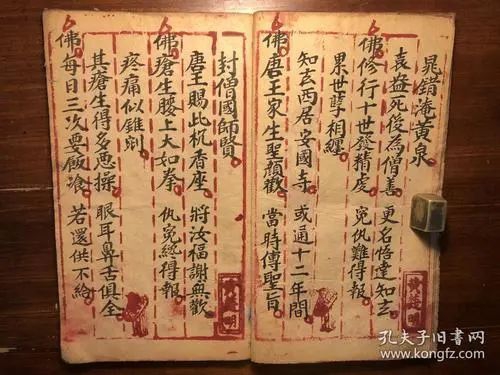 晁錯淹黄泉
袁盎死後為僧善 更名悟達知玄
佛修行十世發精虔 冤仇難得報
累世孽相纏
知玄西居安國寺 或通十二年間
佛唐王家生聖顏歡 當時傳聖旨
封僧國師賢
唐王賜此杭香座 將汝福謝興歡
佛瘡生腰上大如拳 仇冤總得報
疼痛似錐剜
其瘡生得多惡操 眼耳鼻舌俱全
佛每日三次要飯飡 若還供不給
孔夫子旧书网
www.kongfz.com